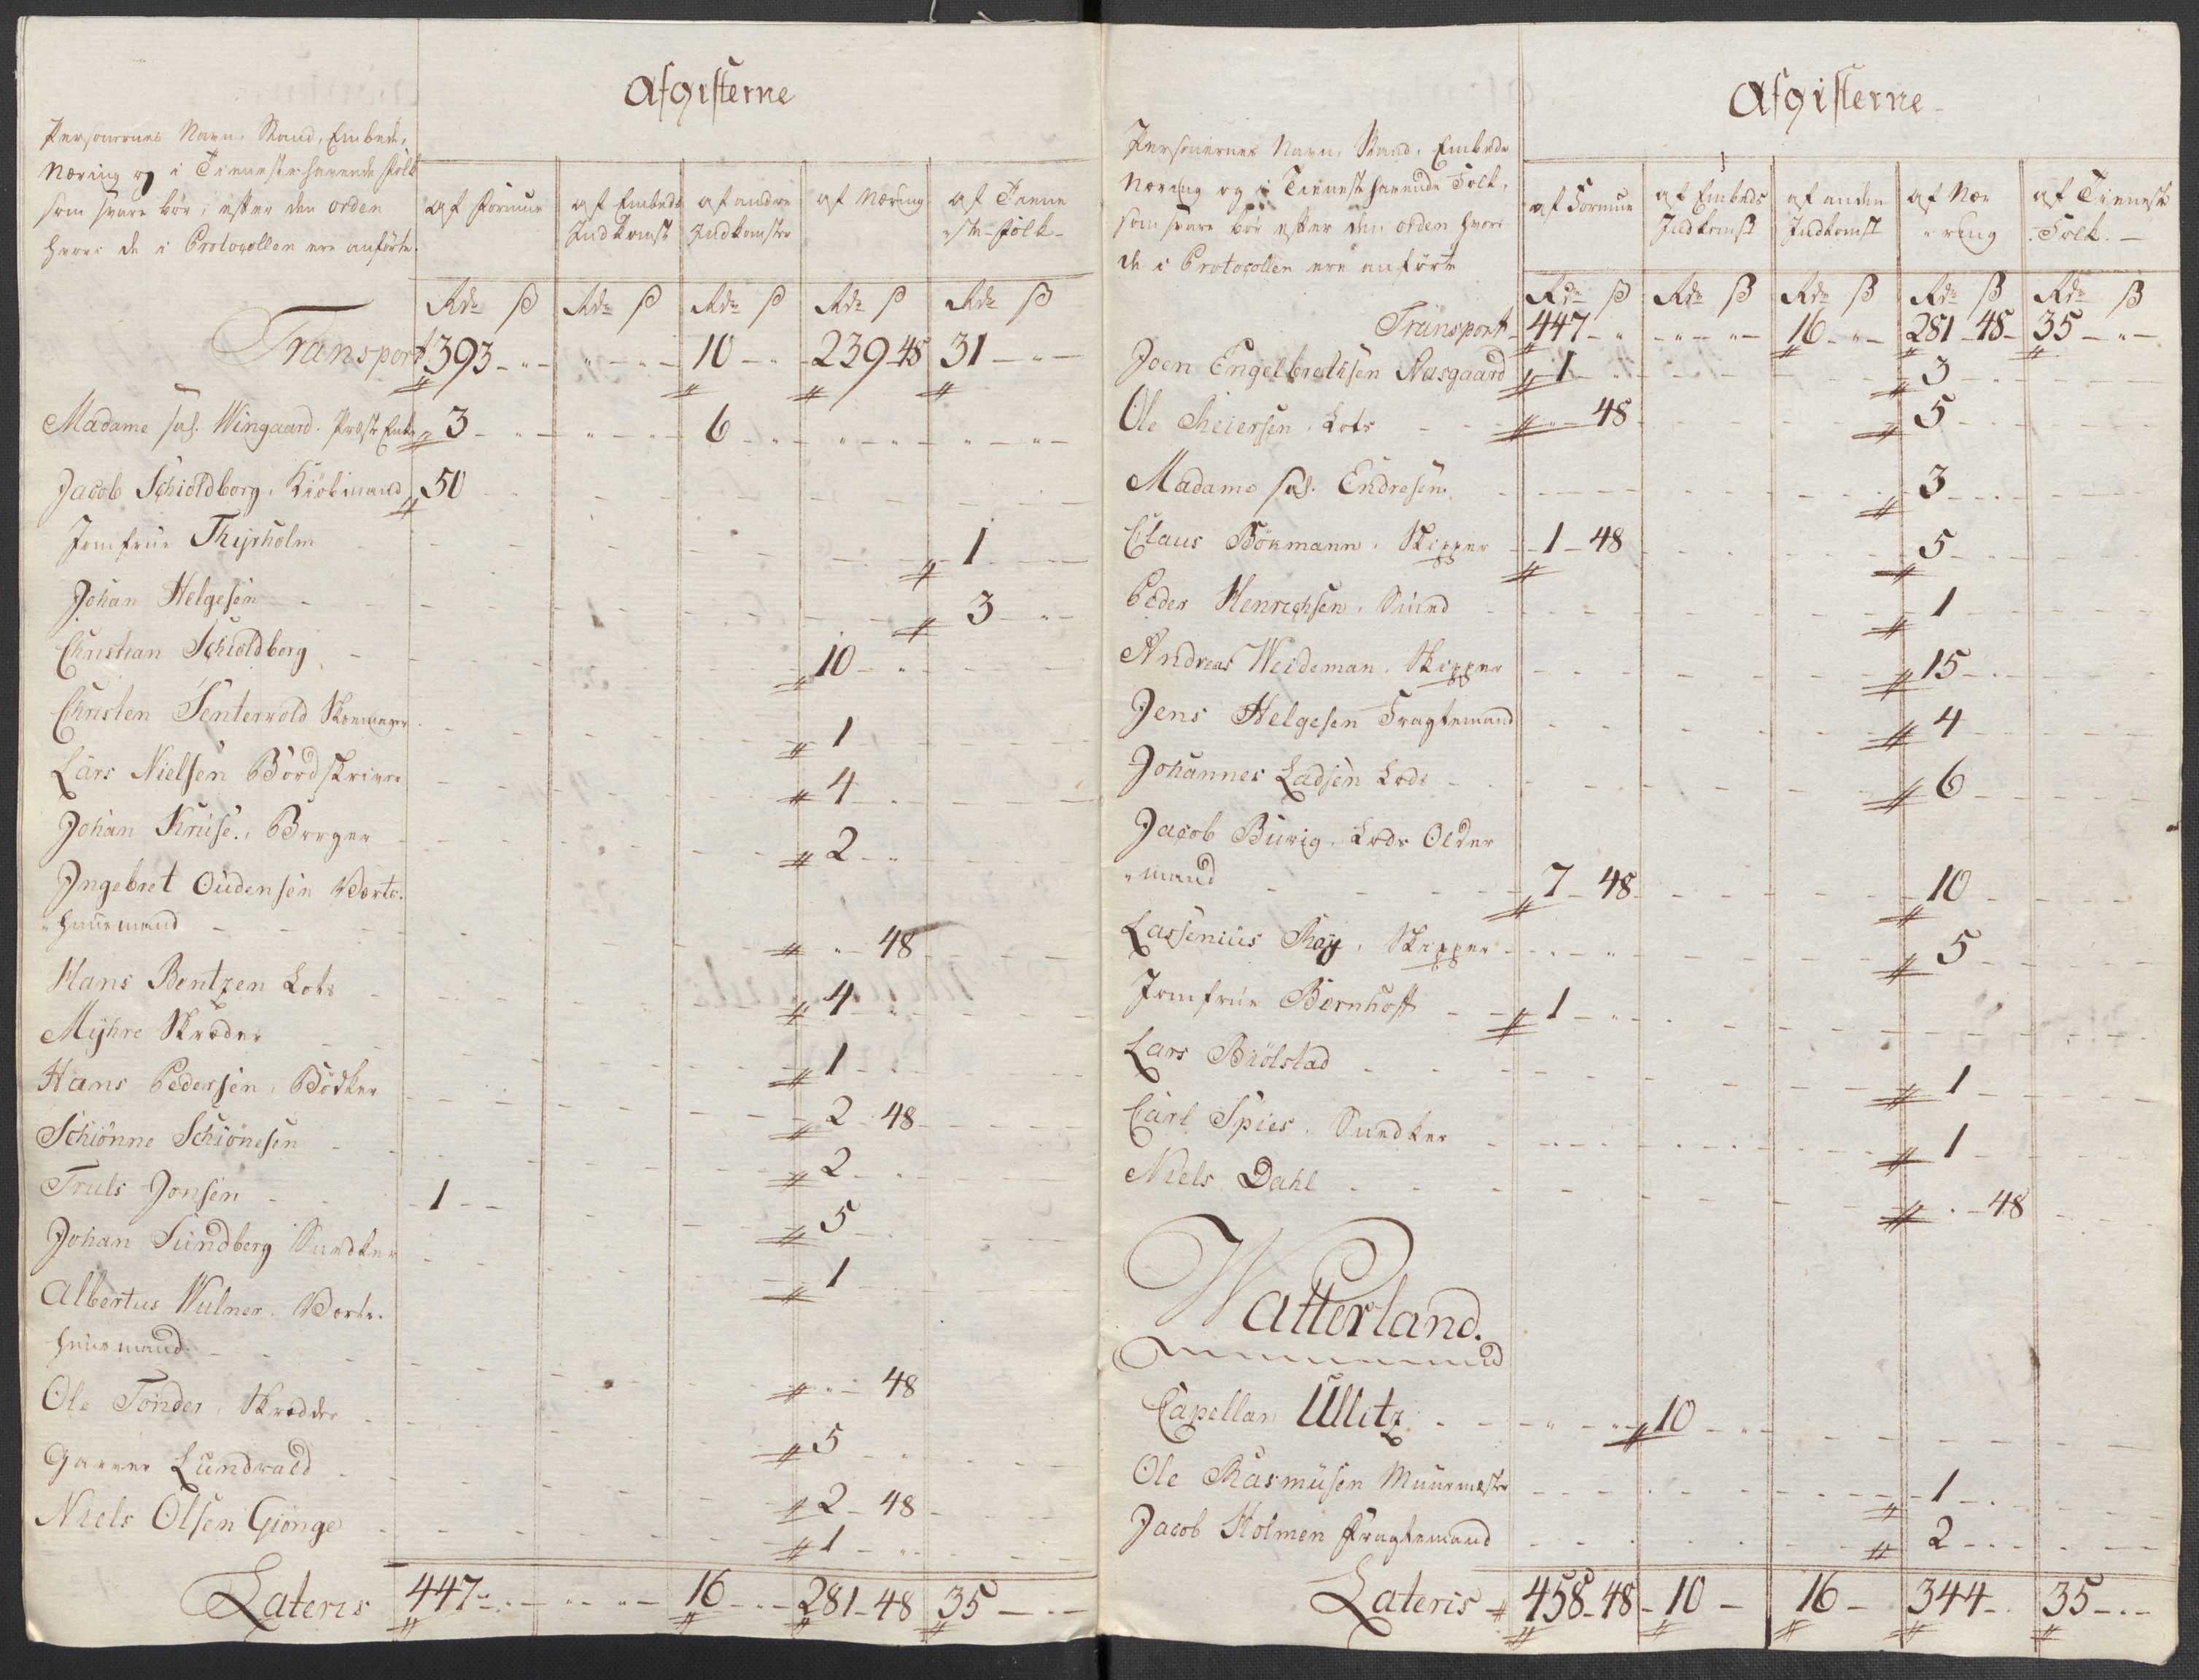 Afgifterne
Personernes Navn, Stand, Embede,
Næring og i Tieneste havende Folk
som svare bør, efter den orden
hvori de i Protocollen ere anførte.
af Formue
af Embeds Indkomst
af andre Indkomster
af Næring
af Tieneste-Folk
Rdr ß Rdr ß Rdr ß Rdr ß Rdr ß
Transport 393 - " - " - " - 10 - " - 239 - 48 31 - " -
Madame sal. Wingaard. Præste Enke 3 - " - " - " - 6 - " - " - " - " - " -
Jacob Schioldborg, Kiøbmand 50
Jomfrue Thyrholm 1
Johan Helgesen 3 - " -
Christian Schioldborg 10 - "
Christen Tentervold Skomager 1
Lars Nielsen Bordskriver 4
Johan Kruse, Borger 2 - "
Ingebret Oudensen Værts-
"huusmand - " - 48
Hans Bentzen Lots 4
Myhre Skræder 1
Hans Pedersen, Bødker 2 - 48
Schiønne Schiønesen 2
Truls Jonsen 1 - - 5
Johan Sundberg Snedker 1
Albertus Wulner. Værts-
huusmand - " - 48
Ole Tønder, Skrædder 5
Garver Lundvald 2 - 48
Niels Olsen Gionge 1 - "
Lateris 447 - " - " - " - 16 - " - 281 - 48 35 - " -
Afgifterne
Personernes Navn, Stand, Embede
Næring og i Tieneste havende Folk,
som svare bør efter den orden hvori
de i Protocollen ere anførte
af Formue
af Embeds Indkomst
af anden Indkomst
af Næ "ring
af Tieneste Folk. -
Rdr ß Rdr ß Rdr ß Rdr ß Rdr ß
Transport 447 - " - " - " - 16 - " - 281 - 48 - 35 - " -
Joen Engelbrethsen Aasgaard 1 3
Ole Theiersen, Lots " - 48 5
Madame sal. Endresen 3
Claus Bökmann, Skipper 1 - 48 5
Peder Henrichsen, Smed 1
Andreas Weideman, Skipper 15
Jens Helgesen Fragtemand 4
Johannes Ladsen Lods 6
Jacob Burig, Lods Older
"mand 7 - 48 10
Lassenius Roy, Skipper 5
Jomfrue Bernhoft 1 - "
Lars Biölstad 1
Carl Spies. Snedker 1
Niels Dahl - 48
Watterland.
Capellan Ullitz 10
Ole Rasmusen Muurmester 1
Jacob Holmen Fragtemand 2
Lateris 458 - 48 - 10 - 16 - 344 - 35 - " -